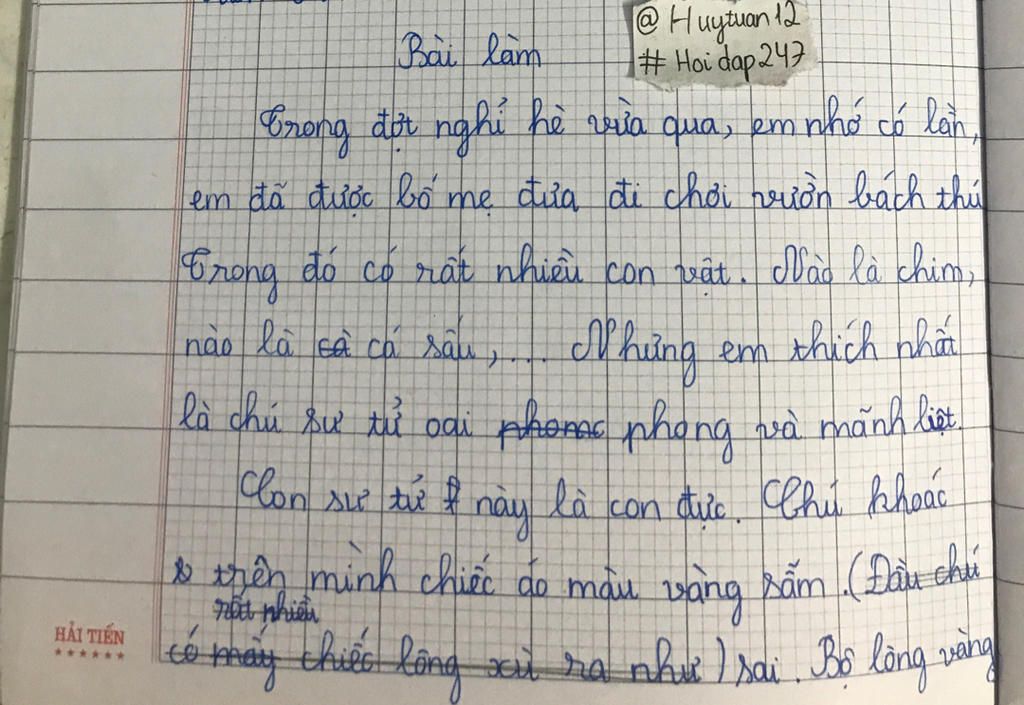 @ Huytuan12
# Hoidap247
Bài làm
Trong đợt nghỉ hè vừa qua, em nhớ có lần,
em đã được bố mẹ đưa đi chơi vườn bách thú
Trong đó có rất nhiều con vật. Nào là chim,
nào là cà cá sấu,... Nhưng em thích nhất
là chú sư tử oai phong và mãnh liệt.
Con sư tử này là con đực. Chú khoác
trên mình chiếc áo màu vàng sẫm. (Đầu chú
rất nhiều
có mấy chiếc lông xù ra như) sai. Bộ lông vàng
HẢI TIẾN